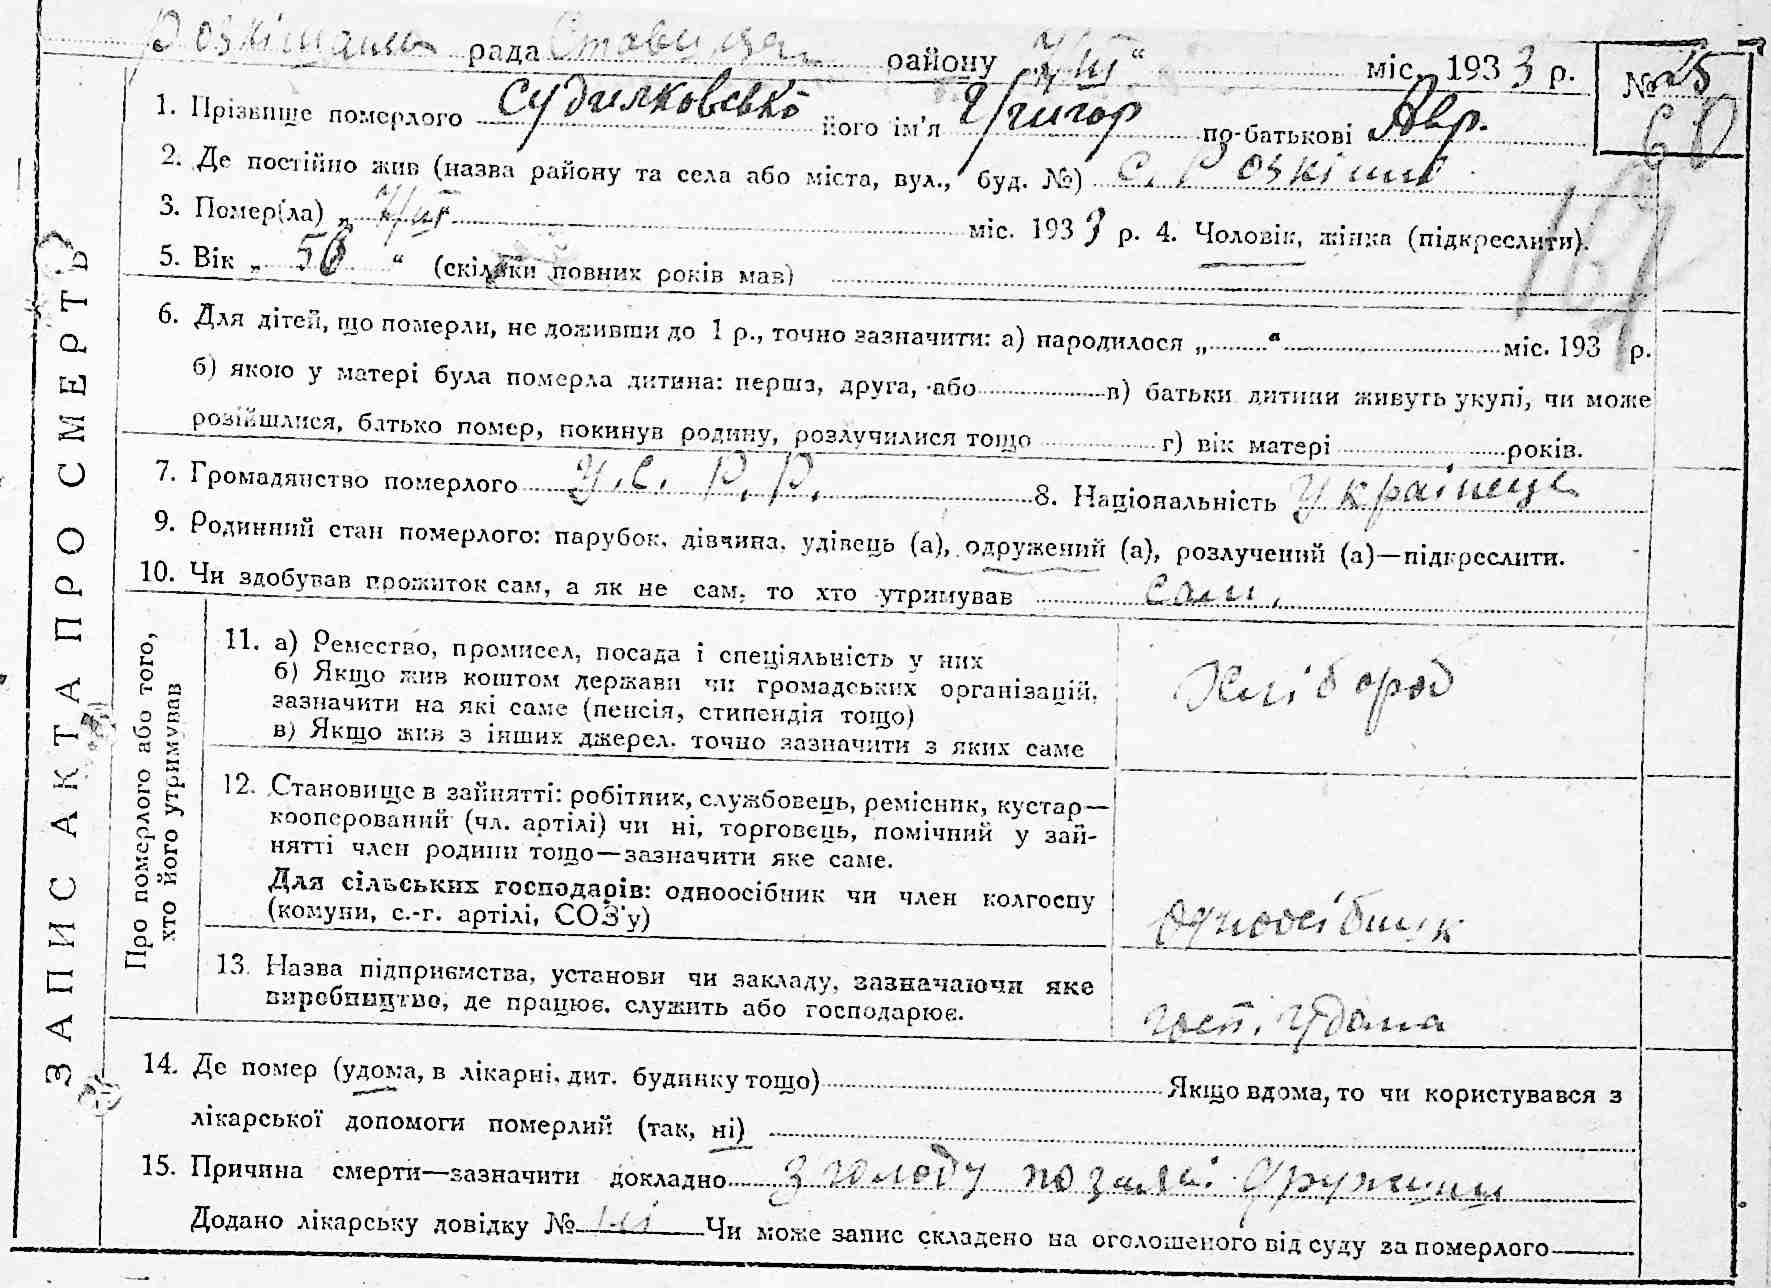 Розкішан рада Ставищан району 7/III “ міс. 1933 р. № 25
1. Прізвище померлого Судилковсько його ім'я Григор по-батькові Авр. 60
2. Де постійно жив (назва району та села або міста, вул., буд. №) с. Розкішна
3. Помер(ла) „ 7/III міс. 1933 р. 4. Чоловік, жінка (підкреслити).
5. Вік „ 56 “ (скільки повних років мав)
6. Для дітей, що померли, не доживши до 1 р., точно зазначити: а) народилося „ “ міс. 193 р.
б) якою у матері була померла дитина: перша, друга, або в) батьки дитини живуть укупі, чи може
розійшлися, батько помер, покинув родину, розлучилися тощо г) вік матері років.
7. Громадянство померлого У.С.Р.Р. 8. Національність Українець
9. Родинний стан померлого: парубок, дівчина, удівець (а), одружений (а), розлучений (а)—підкреслити.
10. Чи здобував прожиток сам, а як не сам, то хто утримував сам.
ЗАПИС АКТА ПРО СМЕРТЬ
Про померлого або того,
хто його утримував
11. а) Ремество, промисел, посада і спеціяльність у них
б) Якщо жив коштом держави чи громадських організацій,
зазначити на які саме (пенсія, стипендія тощо)
в) Якщо жив з інших джерел, точно зазначити з яких саме
Хлібороб
12. Становище в зайнятті: робітник, службовець, ремісник, кустар—
кооперований (чл. артілі) чи ні, торговець, помічний у зай-
нятті член родини тощо—зазначити яке саме.
Для сільських господарів: одноосібник чи член колгоспу
(комуни, с.-г. артілі, СОЗ'у)
одноосібник
13. Назва підприємства, установи чи закладу, зазначаючи яке
виробництво, де працює, служить або господарює.
госп. удома
14. Де помер (удома, в лікарні, дит. будинку тощо) Якщо вдома, то чи користувався з
лікарської допомоги померлий (так, ні)
15. Причина смерти—зазначити докладно з голоду по заяві дружини
Додано лікарську довідку № ні Чи може запис складено на оголошеного від суду за померлого